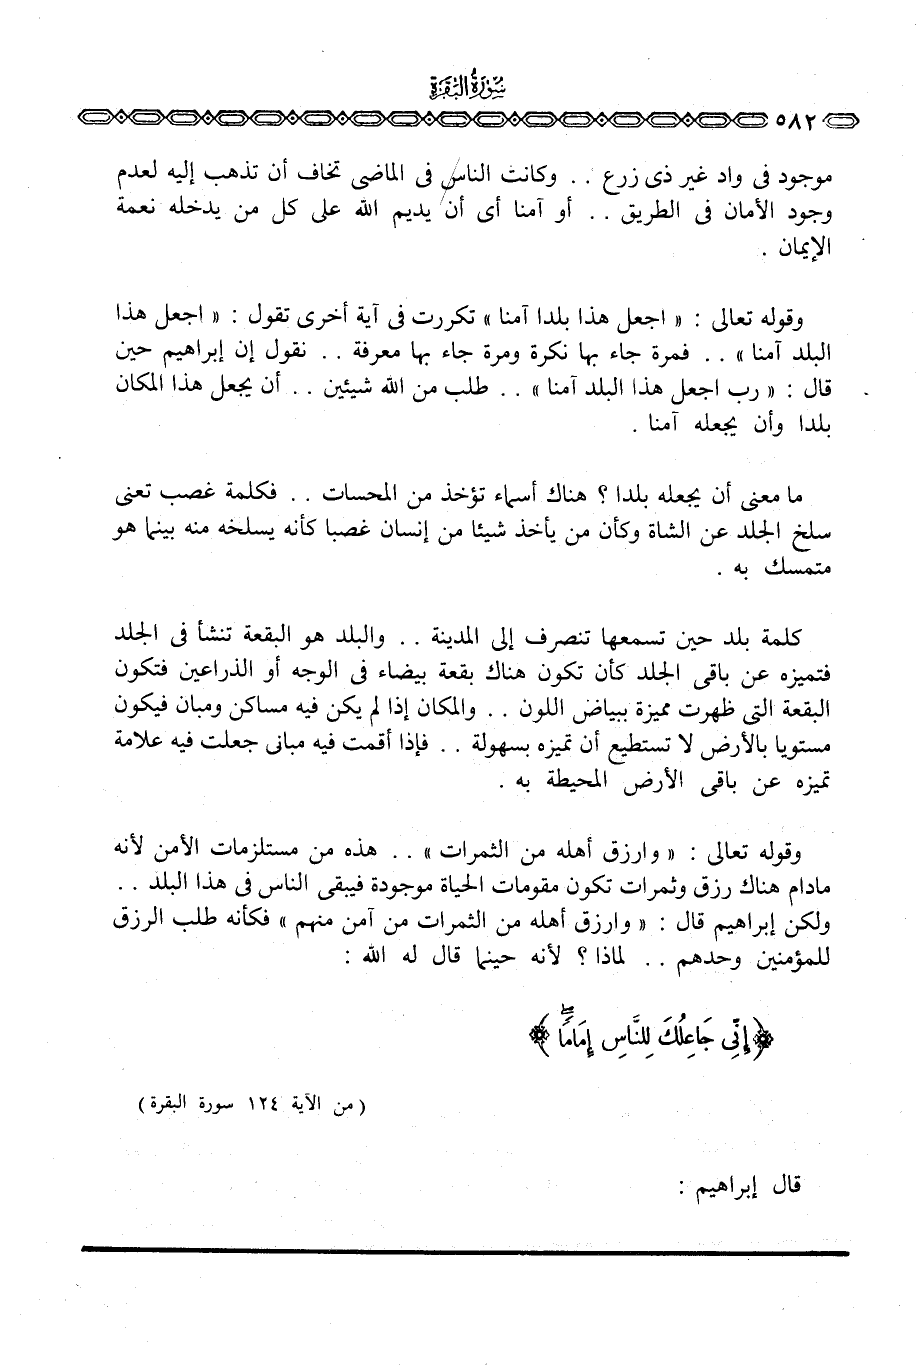 سُورَةُ البَقَرَةِ
٥٨٢
موجود فى واد غير ذى زرع .. وكانت الناس فى الماضى تخاف أن تذهب إليه لعدم
وجود الأمان فى الطريق .. أو آمنا أى أن يديم الله على كل من يدخله نعمة
الإيمان .
وقوله تعالى : « اجعل هذا بلدا آمنا » تكررت فى آية أخرى تقول : « اجعل هذا
البلد آمنا » .. فمرة جاء بها نكرة ومرة جاء بها معرفة .. نقول إن إبراهيم حين
قال : « رب اجعل هذا البلد آمنا » .. طلب من الله شيئين .. أن يجعل هذا المكان
بلدا وأن يجعله آمنا .
ما معنى أن يجعله بلدا ؟ هناك أسماء تؤخذ من المحسات .. فكلمة غصب تعنى
سلخ الجلد عن الشاة وكأن من يأخذ شيئا من إنسان غصبا كأنه يسلخه منه بينما هو
متمسك به .
كلمة بلد حين تسمعها تنصرف إلى المدينة .. والبلد هو البقعة تنشأ فى الجلد
فتميزه عن باقى الجلد كأن تكون هناك بقعة بيضاء فى الوجه أو الذراعين فتكون
البقعة التى ظهرت مميزة ببياض اللون .. والمكان إذا لم يكن فيه مساكن ومبان فيكون
مستويا بالأرض لا تستطيع أن تميزه بسهولة .. فإذا أقمت فيه مبانى جعلت فيه علامة
تميزه عن باقى الأرض المحيطة به .
وقوله تعالى : « وارزق أهله من الثمرات » .. هذه من مستلزمات الأمن لأنه
مادام هناك رزق وثمرات تكون مقومات الحياة موجودة فيبقى الناس فى هذا البلد ..
ولكن إبراهيم قال : « وارزق أهله من الثمرات من آمن منهم » فكأنه طلب الرزق
للمؤمنين وحدهم .. لماذا ؟ لأنه حينما قال له الله :
﴿ إِنِّى جَاعِلُكَ لِلنَّاسِ إِمَامًاۖ ﴾
( من الآية ١٢٤ سورة البقرة )
قال إبراهيم :